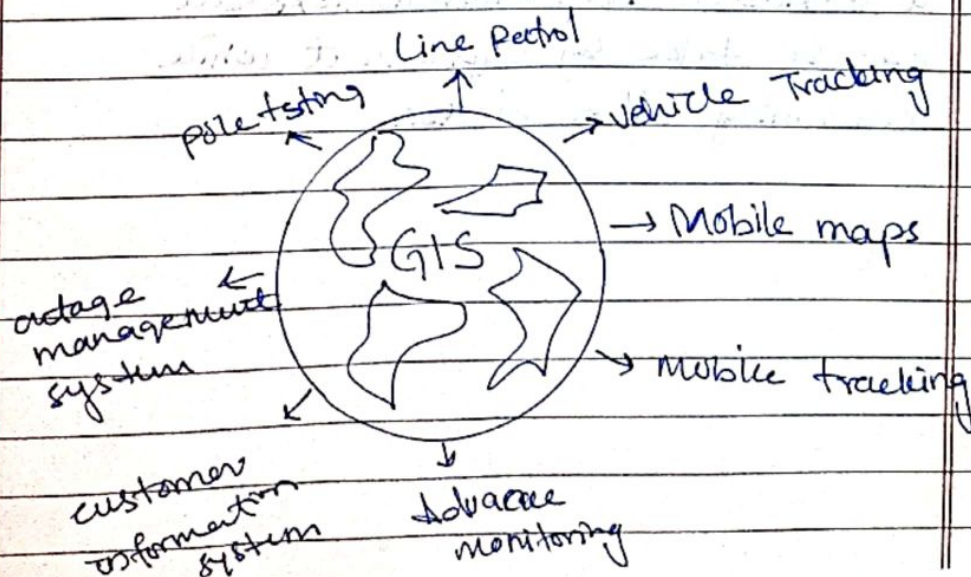 Line Pectrol
vehicle Tracking
pole tsting
Mobile maps
GIS
outage
management
system
Mobile tracking
customer
information
system
Advance
monitoring